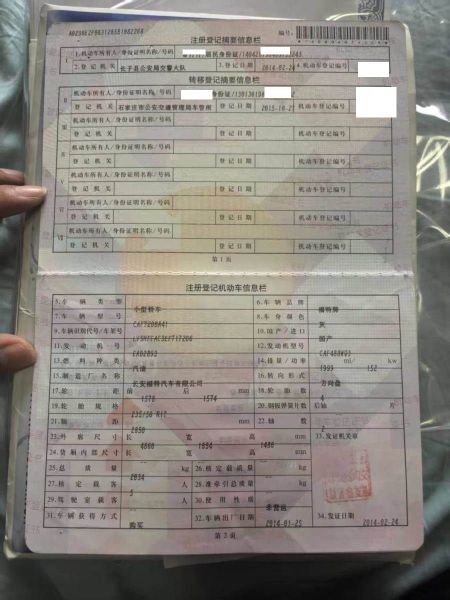 注册登记摘要信息栏
编号:
1.机动车所有人/身份证明名称/号码 居民身份证
2.登记机关 长子县公安局交警大队 3.登记日期 2014-02-24 4.机动车登记编号
转移登记摘要信息栏
Ⅱ 机动车所有人/身份证明名称/号码
登记机关 石家庄市公安交通管理局车管所 登记日期 机动车登记编号
Ⅲ 机动车所有人/身份证明名称/号码
登记机关 登记日期 机动车登记编号
Ⅳ 机动车所有人/身份证明名称/号码
登记机关 登记日期 机动车登记编号
Ⅴ 机动车所有人/身份证明名称/号码
登记机关 登记日期 机动车登记编号
Ⅵ 机动车所有人/身份证明名称/号码
登记机关 登记日期 机动车登记编号
Ⅶ 机动车所有人/身份证明名称/号码
登记机关 登记日期 机动车登记编号
第1页
注册登记机动车信息栏
5.车辆类型 小型轿车 6.车辆品牌 福特牌
7.车辆型号 CAF7200A41 8.车身颜色 灰
9.车辆识别代号/车架号 10.国产/进口 国产
11.发动机号 12.发动机型号
13.燃料种类 汽油 14.排量/功率 1999 ml/ 152 kw
15.制造厂名称 长安福特汽车有限公司 16.转向形式 方向盘
17.轮距 前 1578 后 1574 mm 18.轮胎数 4
19.轮胎规格 20.钢板弹簧片数 后轴 片
21.轴距 2850 mm 22.轴数 2
23.外廓尺寸 长 宽 高 1486 mm 33.发证机关章
24.货厢内部尺寸 长 宽 高 mm
25.总质量 kg 26.核定载质量 kg
27.核定载客 5 人 28.准牵引总质量 kg
29.驾驶室载客 人 30.使用性质 非营运
31.车辆获得方式 购买 32.车辆出厂日期 2014-01-25 34.发证日期 2014-02-24
第2页